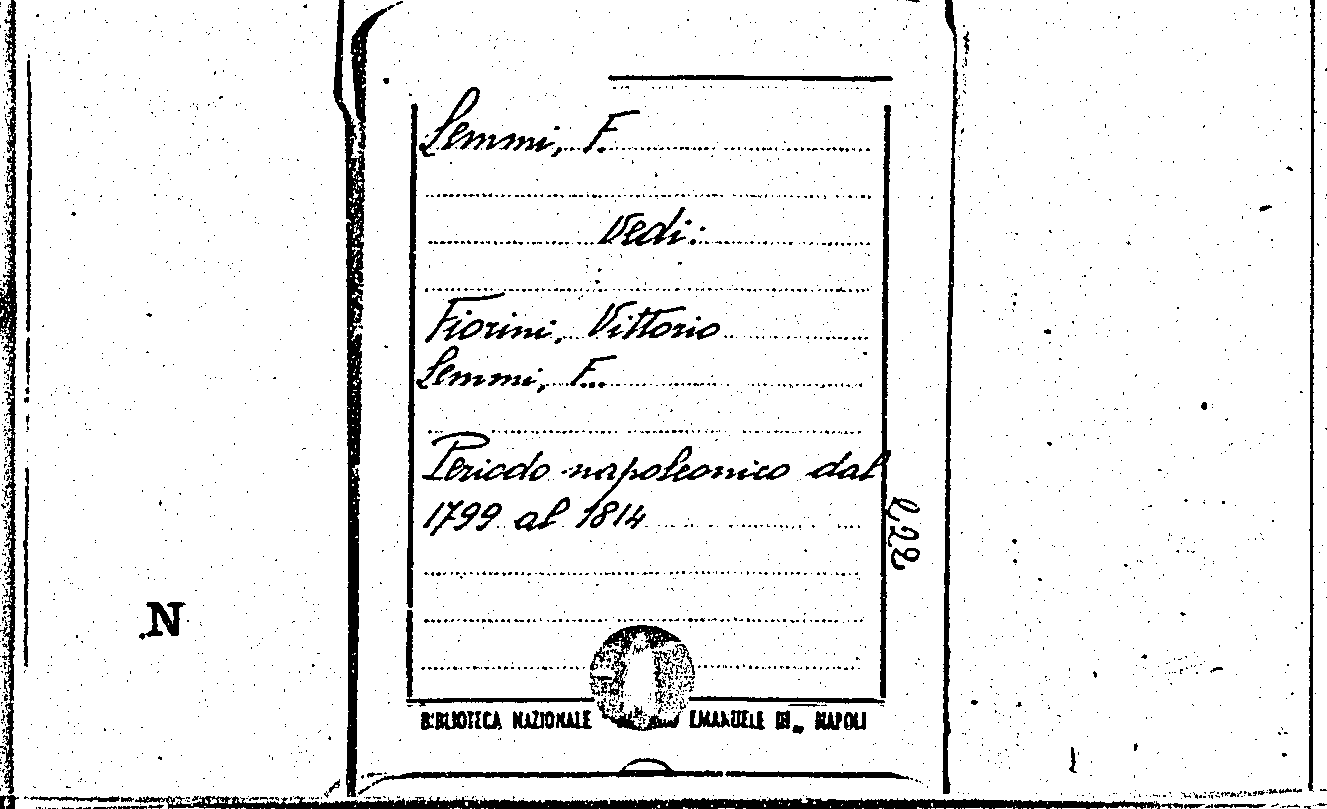 Lemmi, F.
Vedi:
Fiorini, Vittorio
Lemmi, F..
Periodo napoleonico dal
1799 al 1814
N
BIBLIOTECA NAZIONALE EMANUELE III„ NAPOLI